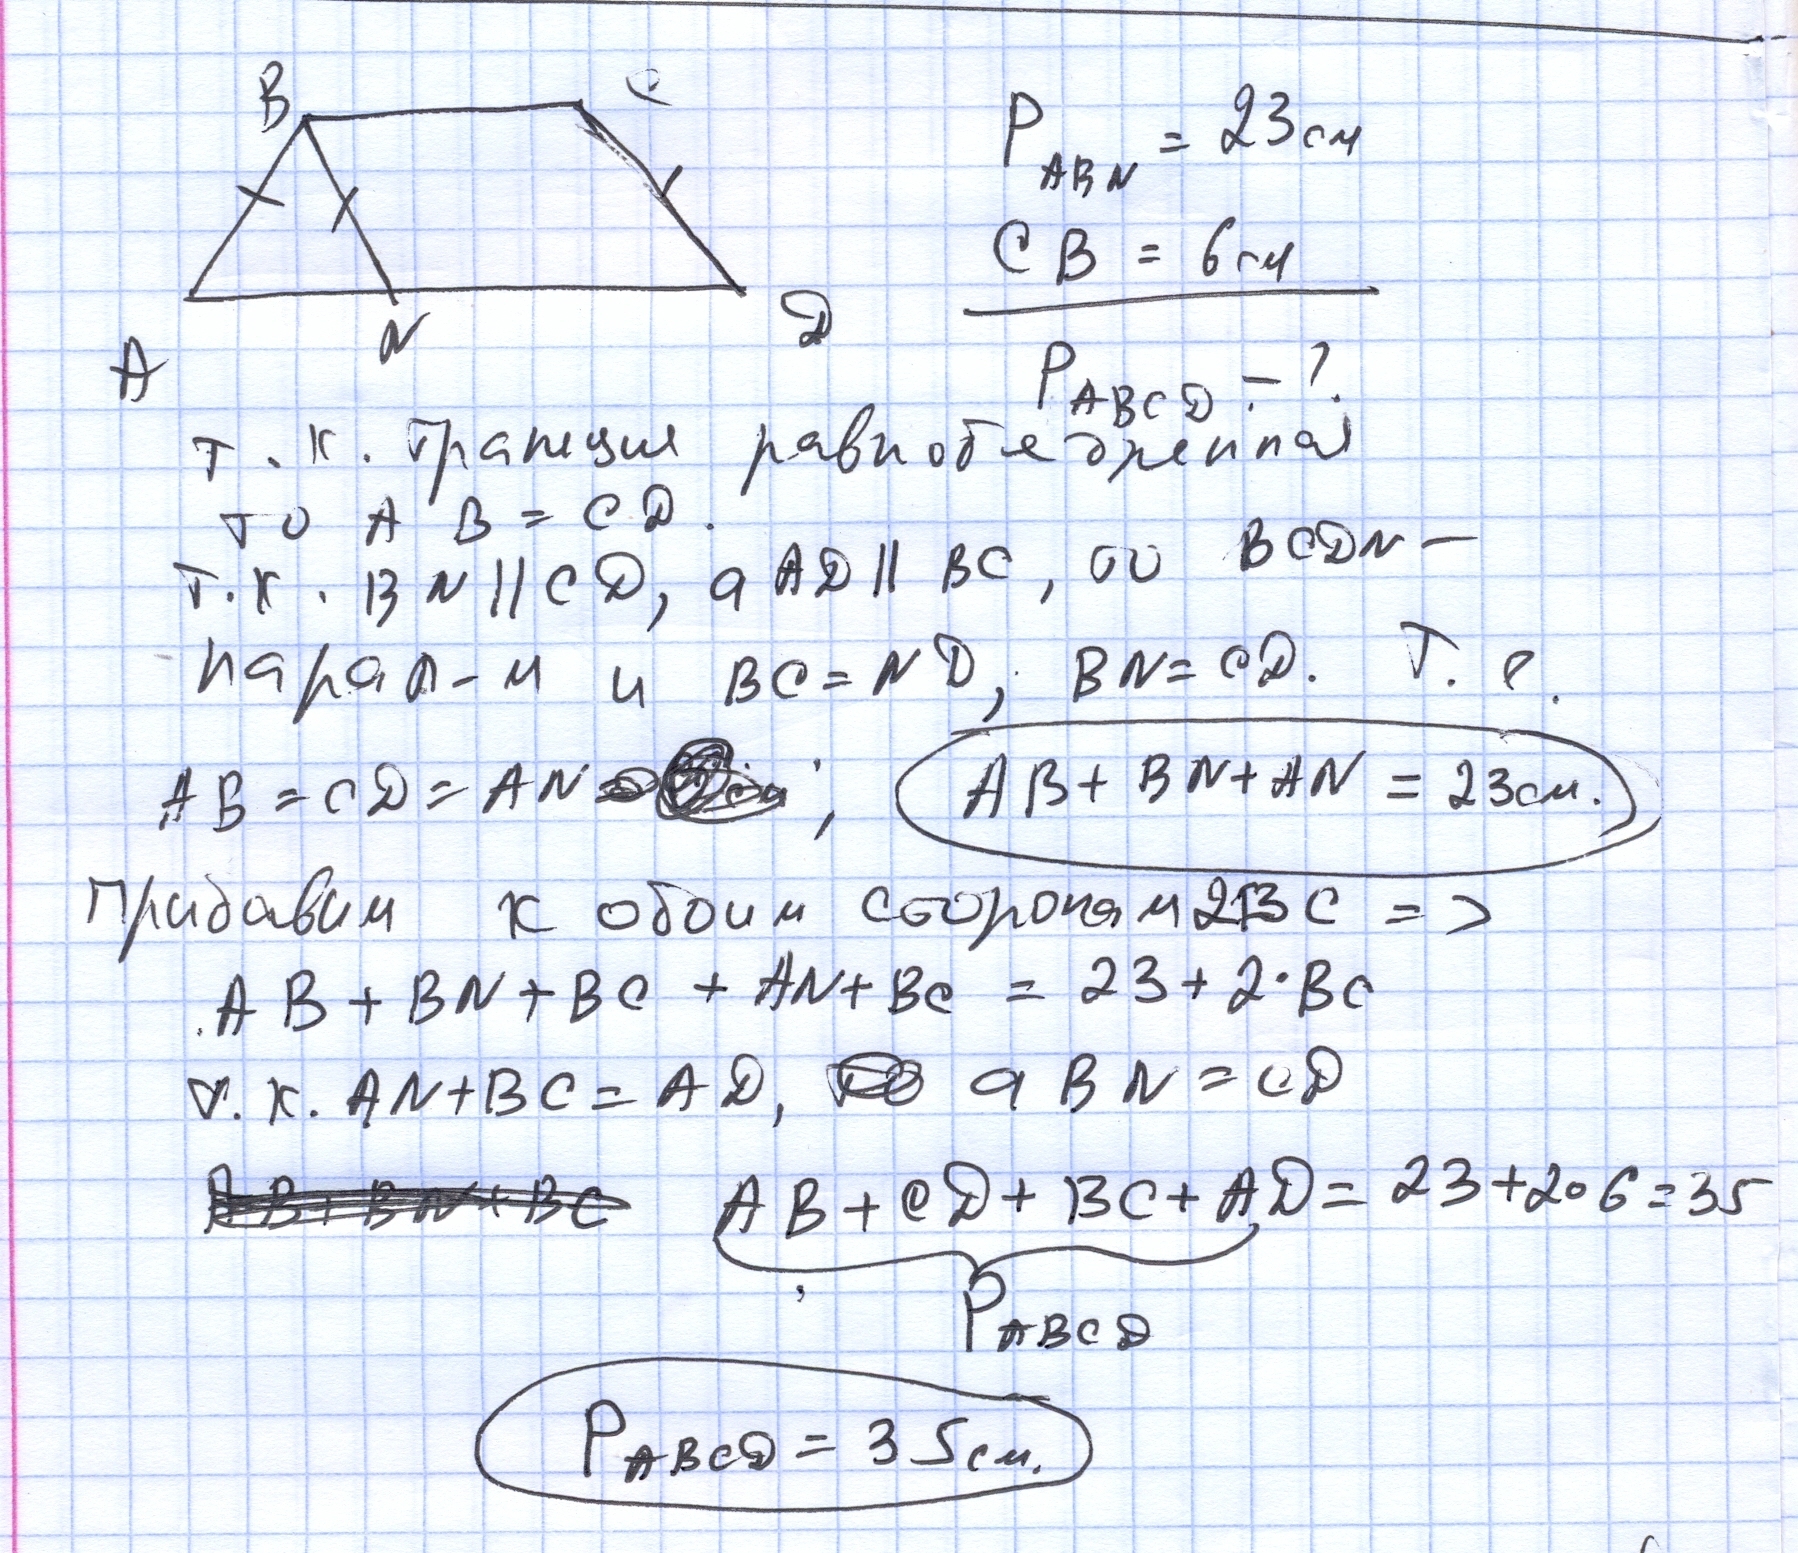 B C
A N D
P ABN = 23см
CB = 6см
P ABCD - ?
т.к. трапеция равнобедренная
то AB = CD.
т.к. BN || CD, а AD || BC, то BCDN –
парал-м и BC = ND, BN = CD. Т.е.
AB = CD = AN ; AB + BN + AN = 23см.
Придавим к обоим сторонам 2BC =>
AB + BN + BC + AN + BC = 23 + 2·BC
т.к. AN + BC = AD, а BN = CD
AB + BN + BC AB + CD + BC + AD = 23 + 2·6 = 35
P ABCD
P ABCD = 35см.